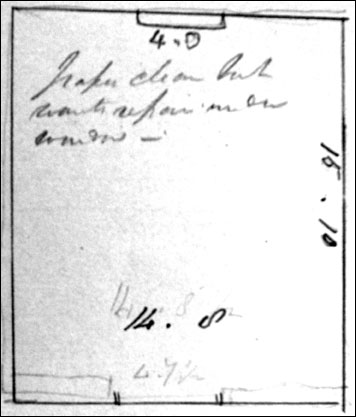 4.0
Paper clean but
wants repair under
window —
15.10
14.8
14.8
4.7½